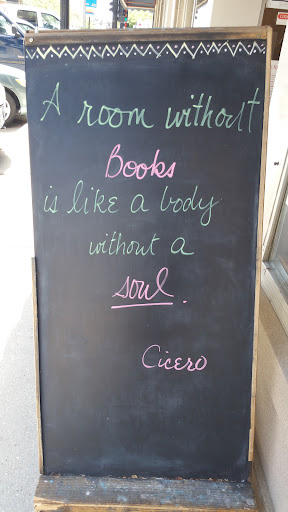 A room without
Books
is like a body
without a
soul.
Cicero